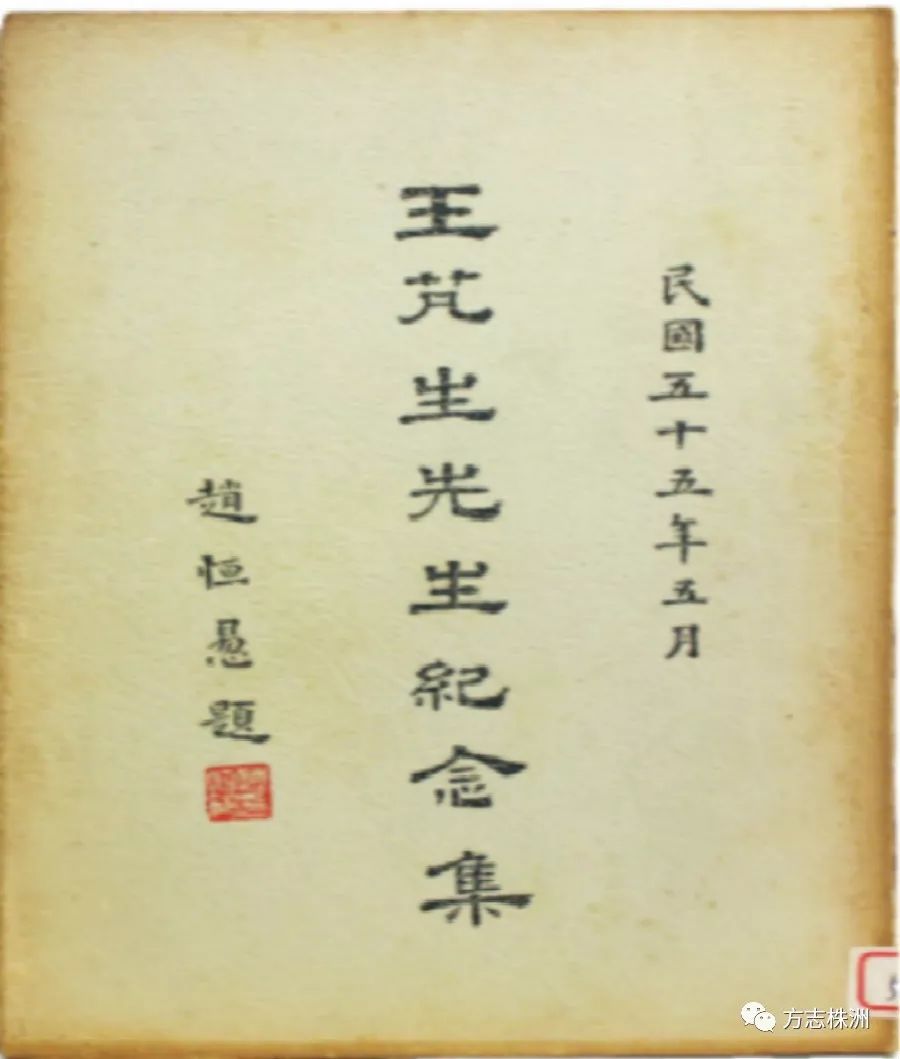 民國五十五年五月
王芃生先生紀念集
趙恒惖題
方志株洲